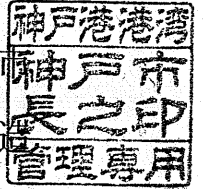 神戸港港湾
神戸市
長之印
管理専用